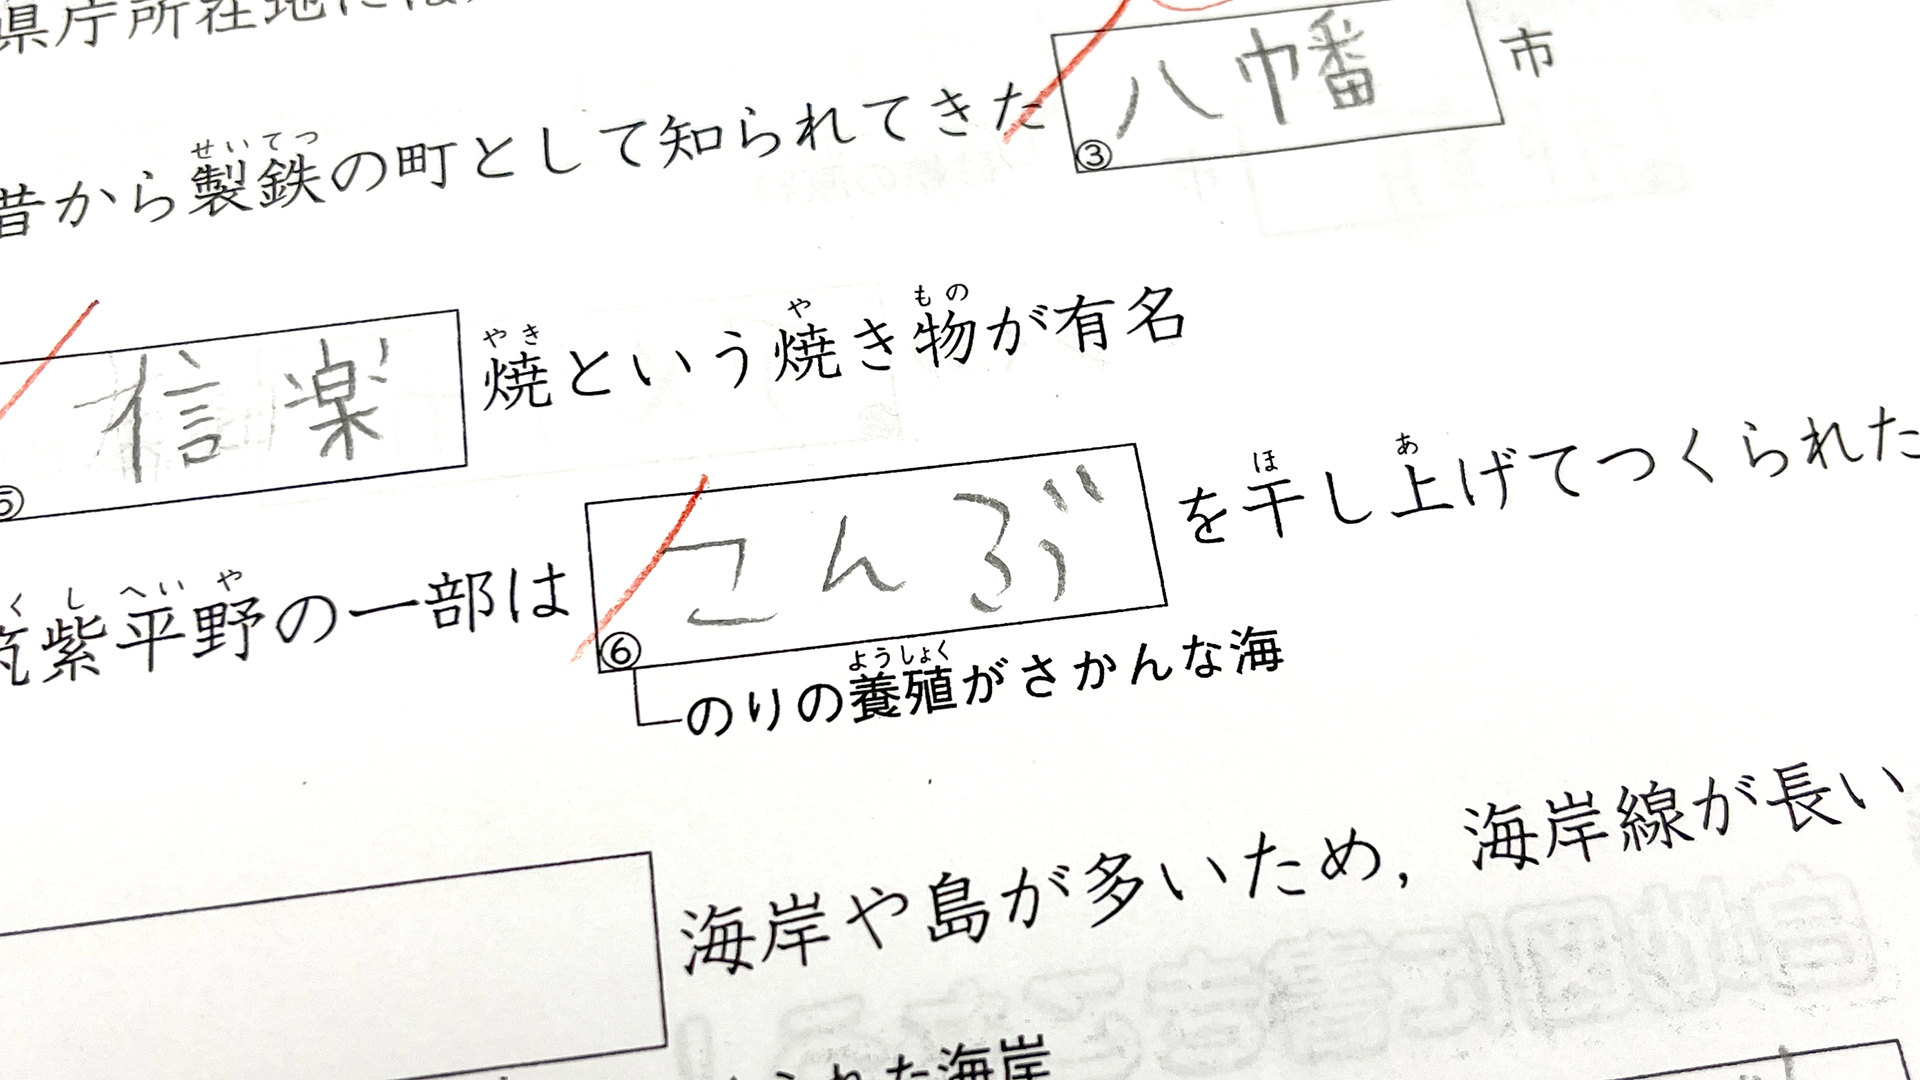 県庁所在地には
昔から製鉄の町として知られてきた ③ 八幡 市
せいてつ
⑤ 信楽 焼という焼き物が有名
やき や もの
筑紫平野の一部は ⑥ こんぶ を干し上げてつくられた
くしへいや ほ あ
のりの養殖がさかんな海
ようしょく
海岸や島が多いため，海岸線が長い
られた海岸